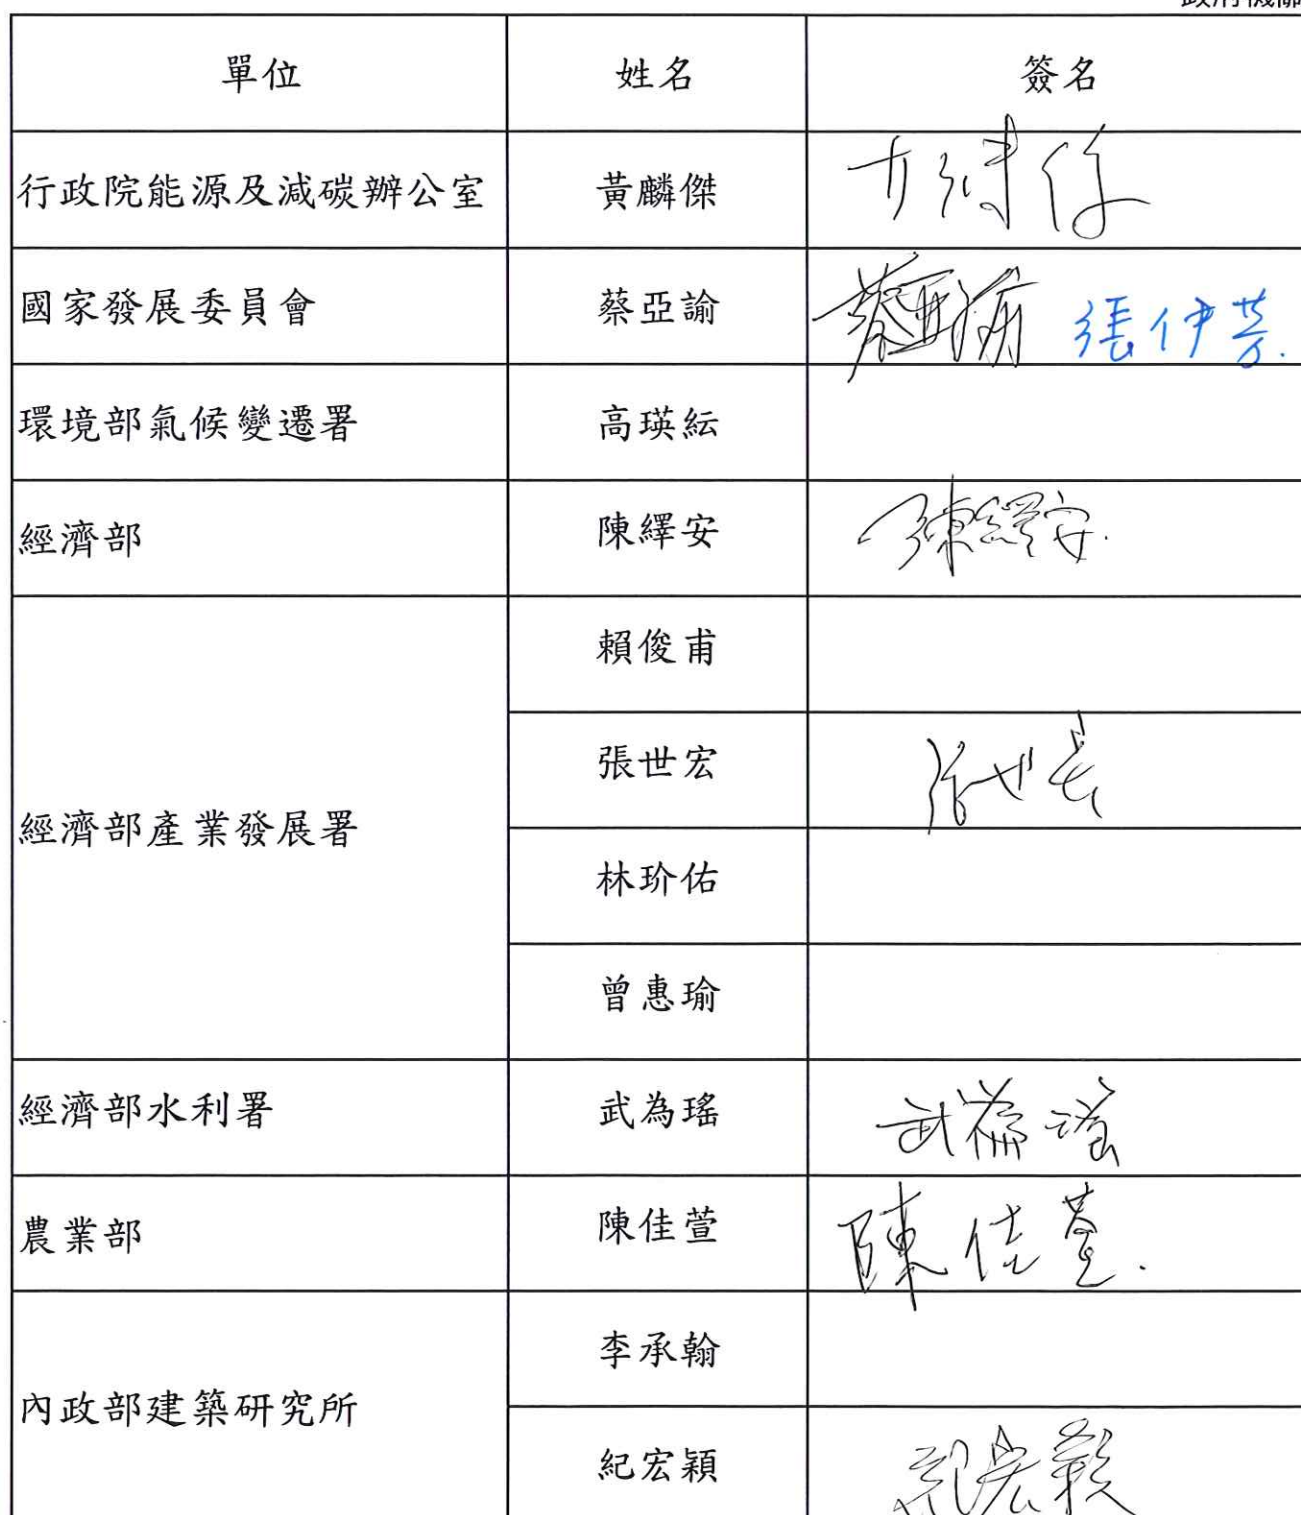 單位 姓名 簽名
行政院能源及減碳辦公室 黃麟傑
國家發展委員會 蔡亞諭 蔡亞諭 張伊芳.
環境部氣候變遷署 高瑛紜
經濟部 陳繹安 陳繹安.
賴俊甫
經濟部產業發展署 張世宏
林玠佑
曾惠瑜
經濟部水利署 武為瑤 武為瑤
農業部 陳佳萱 陳佳萱.
李承翰
內政部建築研究所
紀宏穎 紀宏穎